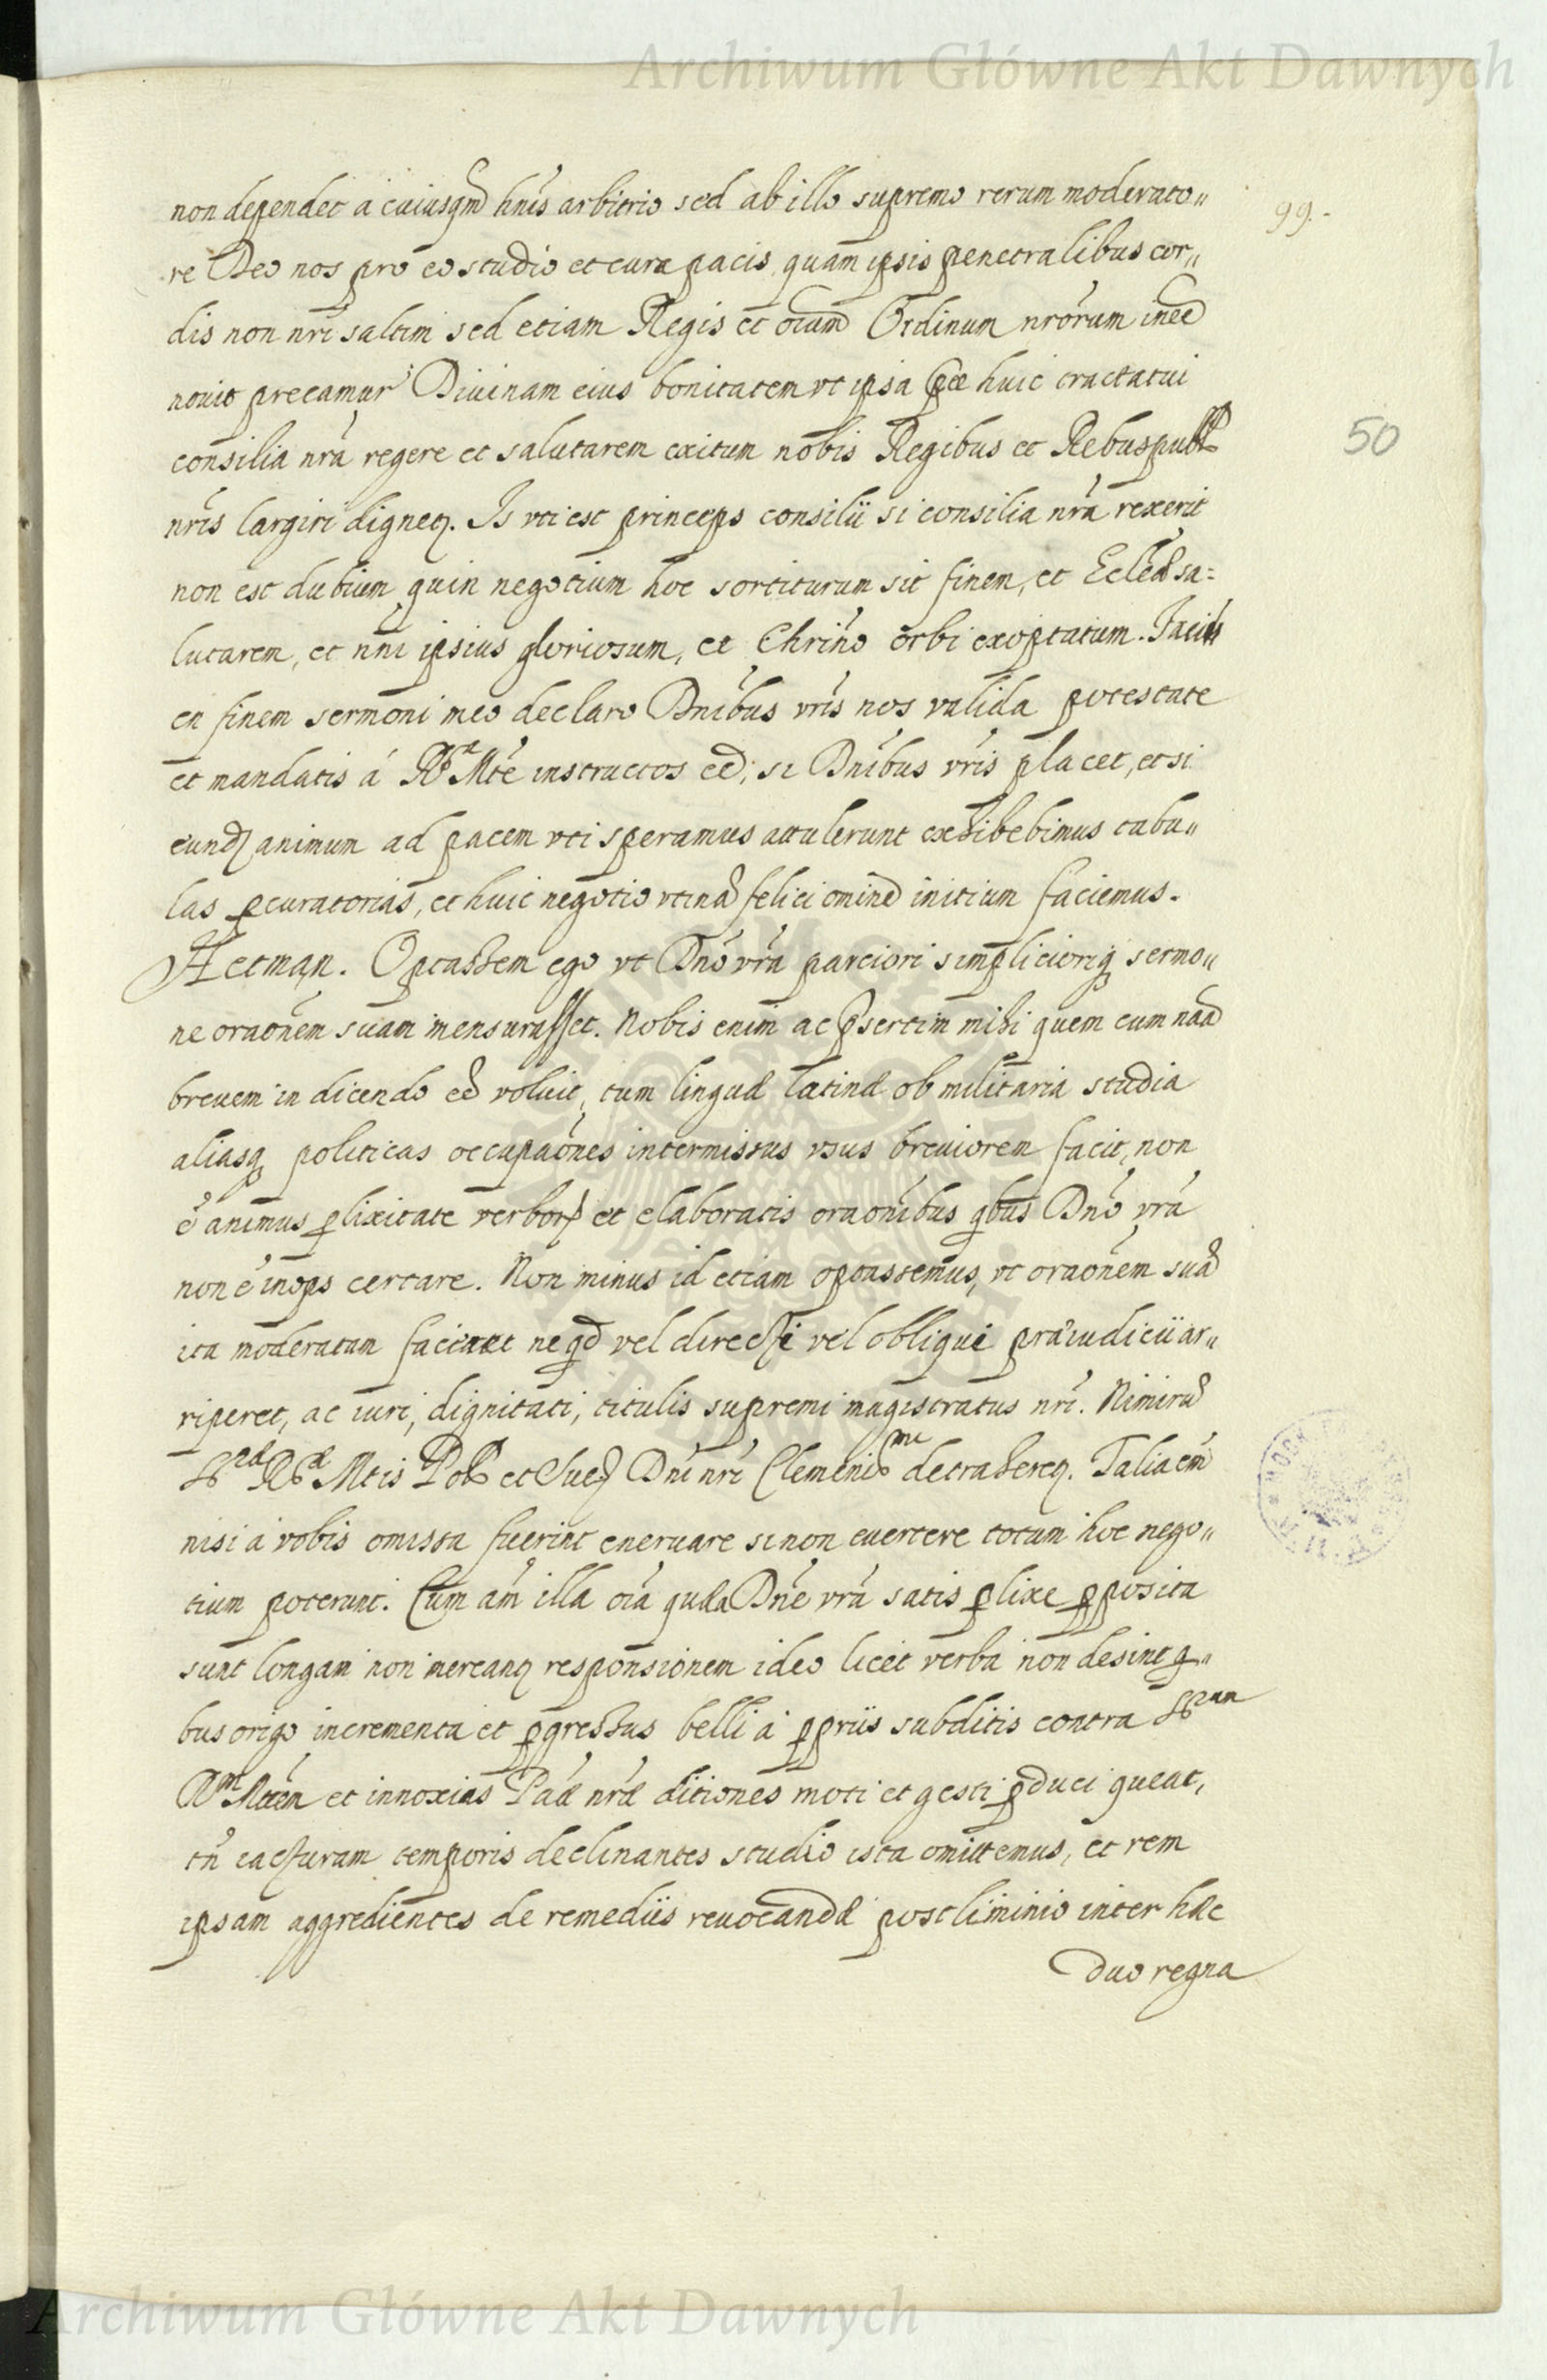 Archiwum Główne Akt Dawnych
99.-
non dependet a cuiusqm hnis arbitrio sed ab illo supremo rerum moderato„
re Deo nos pro eo studio et cura pacis, quam ipsis penetralibus cor„
dis non nri saltim sed etiam Regis et oium Ordinum nrorum inee
novit precamur Divinam eius bonitatem vt ipsa huic tractatui
50
consilia nra regere et salutarem exitum nobis Regibus et Rebuspubl
nris largiri digneq. Is vti est princeps consilii si consilia nra rexerit
non est dubium quin negotium hoc sortiturum sit finem, et Eccleae sa=
lutarem, et nni ipsius gloriosum, et Chrino orbi exoptatum. Faciens
en finem sermoni meo declaro Dnibus vris nos valida potestate
et mandatis á Ra Mte instructos ee; si Dnibus vris placet, et si
eundq animum ad pacem vti speramus attulerunt exhibebimus tabu„
las pcuratorias, et huic negotio vtina felici omine initium faciemus.
Hetman. Optassem ego vt Dno vra parciori simplicioriq sermo„
ne oraonem suam mensurasset. Nobis enim ac psertim mihi quem cum naa
brevem in dicendo ee voluit, tum linguae latinae ob militaria studia
aliasq politicas occupaones intermissus vsus breviorem facit, non
e animus plixitate verborum et elaboratis oraonibus qbus Dno vra
non e inops certare. Non minus id etiam optassemus, vt oraonem sua
ita moderatam faceret ne qd vel directe vel oblique praeiudicii ar„
riperet, ac iuri, dignitati, titulis supremi magistratus nri. Nimiru
Sae Rae Mtis Pol et Sueq Dni nri Clementismi detraheretq. Talia em
nisi a vobis omissa fuerint enervare si non evertere totum hoc nego„
tium poterunt. Cum am illa oia quae a Dne vra satis plixe pposita
sunt longam non mereanq responsionem ideo licet verba non desint q„
bus origo incrementa et pgressus belli a ppriis subditis contra Sram
Rm Mtem et innoxias Pae nrae ditiones moti et gesti pduci queat,
tn iacturam temporis declinantes studio ista omittemus, et rem
ipsam aggredientes de remediis revocandae postliminio inter haec
duo regna
Archiwum Główne Akt Dawnych